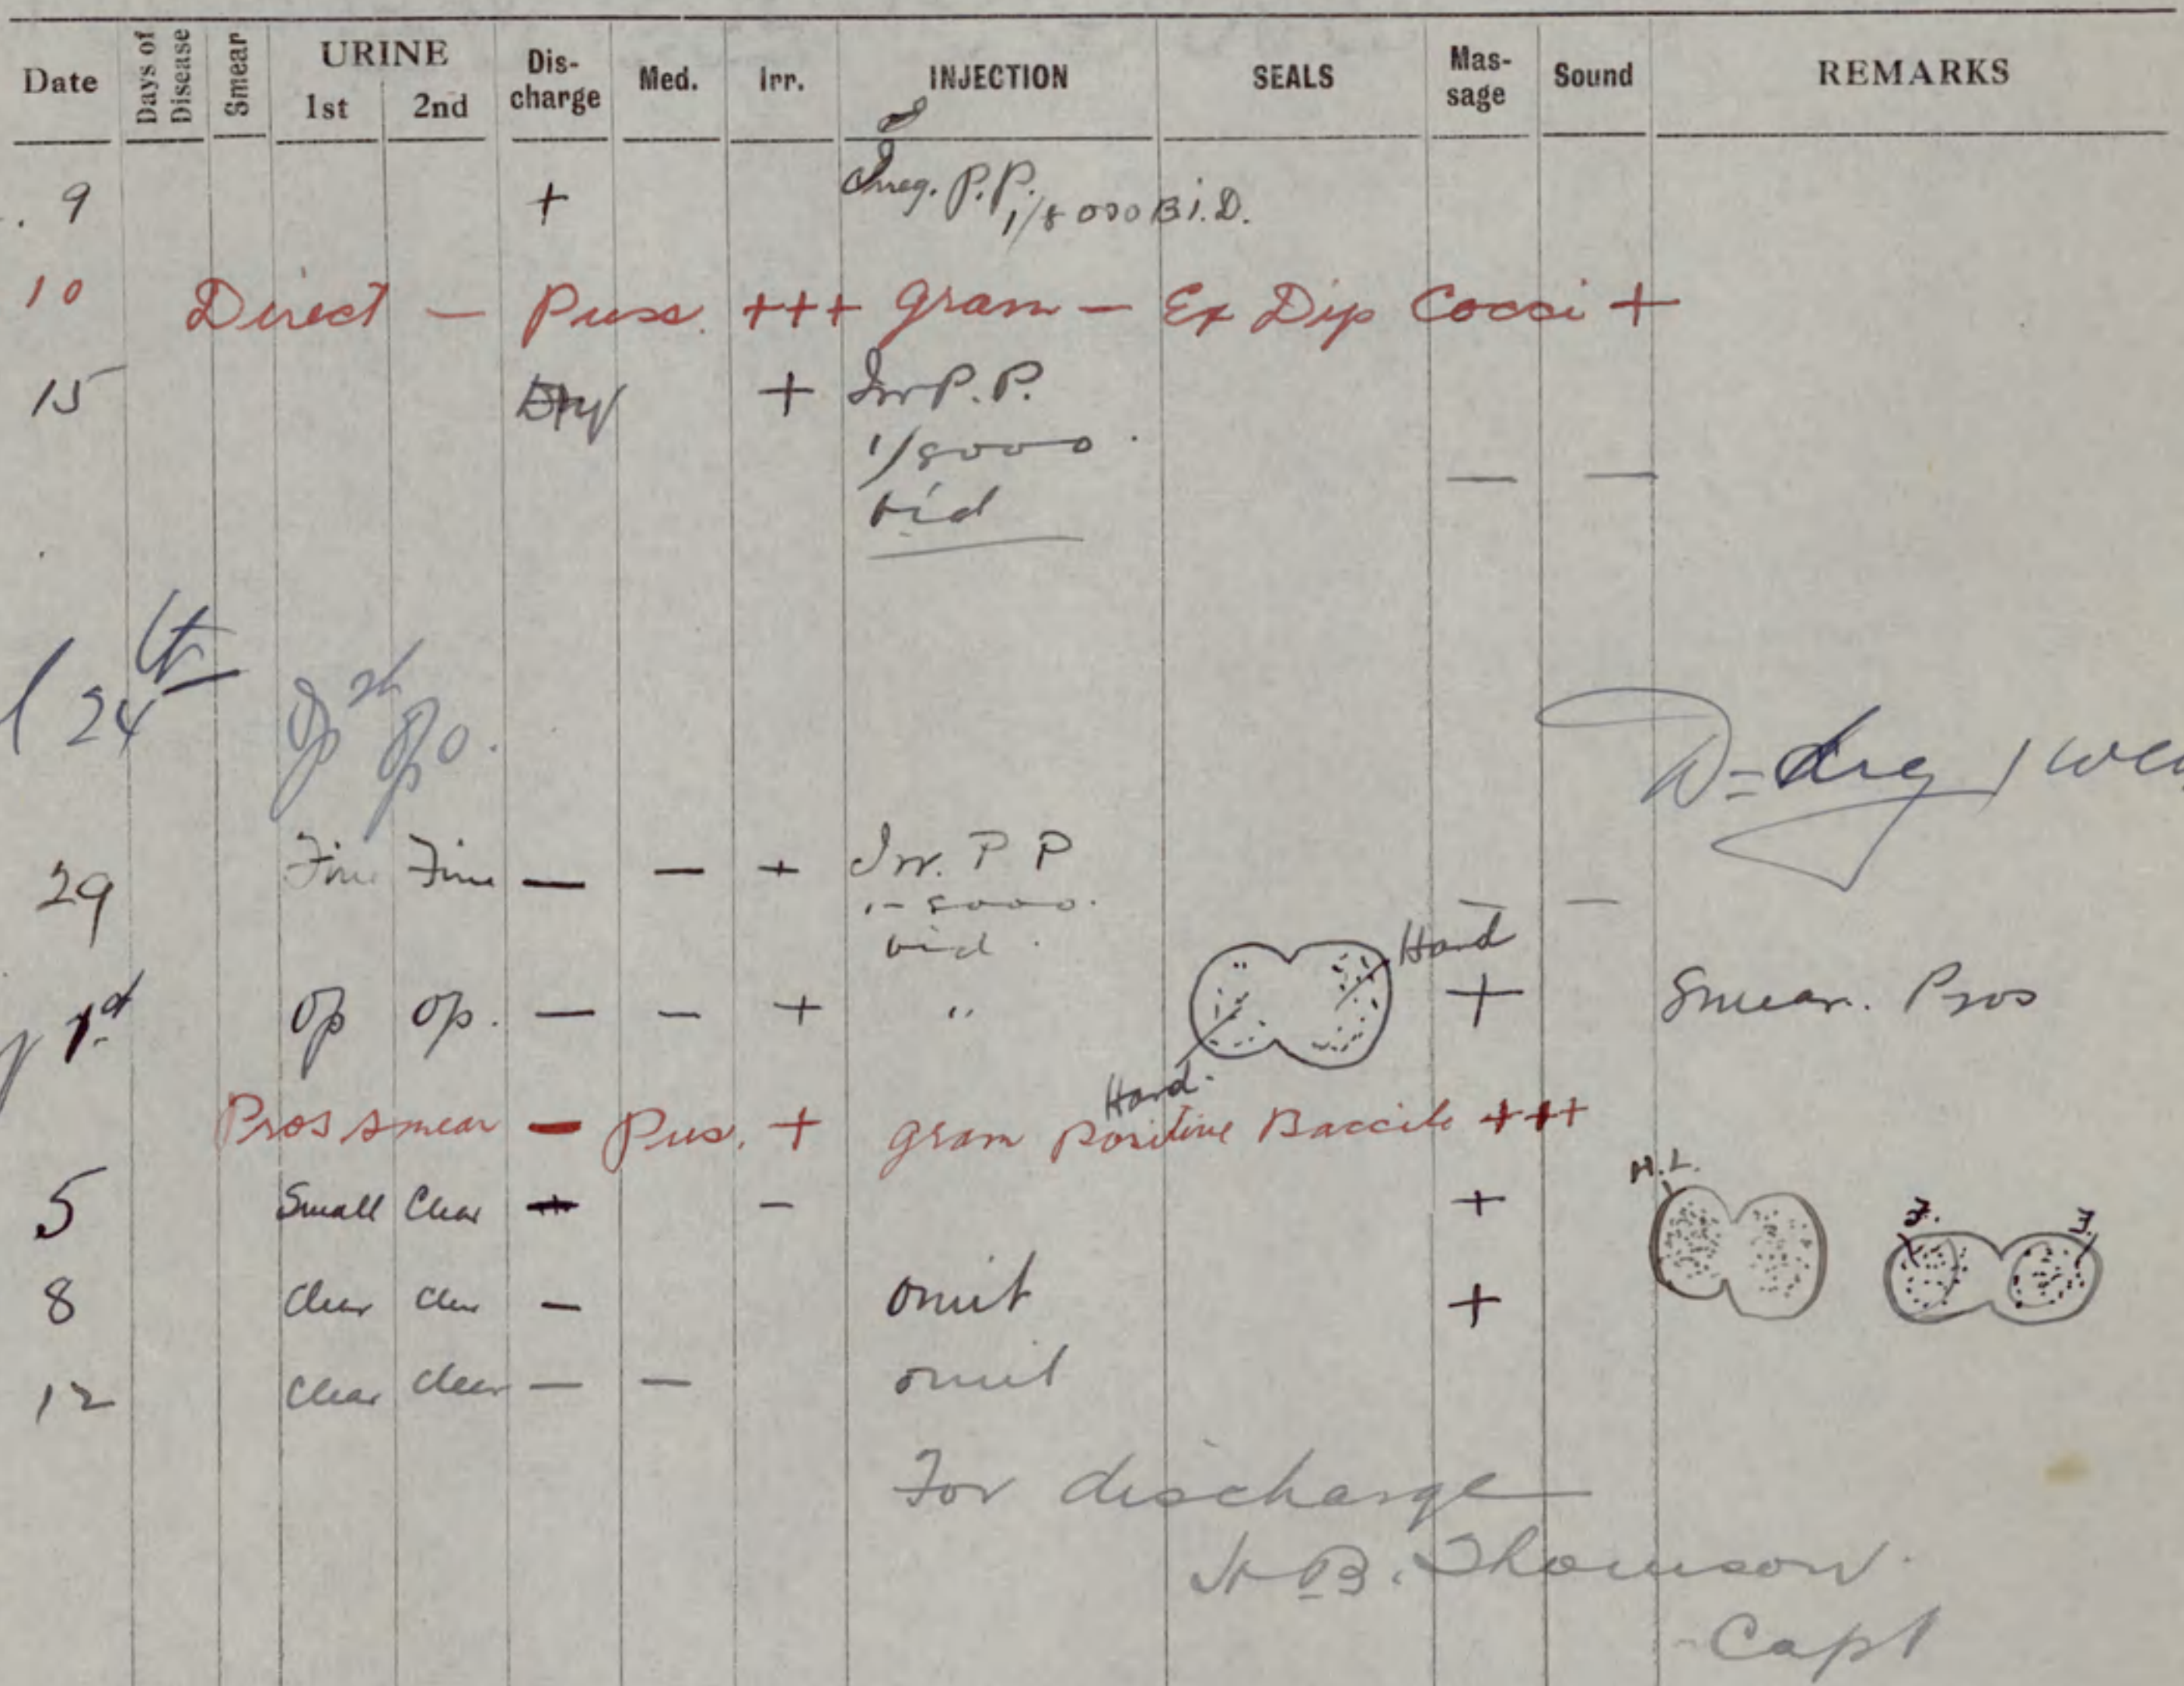 Date Days of Disease Smear URINE 1st 2nd Dis-charge Med. Irr. INJECTION SEALS Mas-sage Sound REMARKS
. 9 + Irreg. P.P. 1/8000 B i.D.
10 Direct — Puss. +++ gram — Ex Dip Cocci +
15 Dry + Irr P.P.
1/8000.
bid — —
24th Op Op
D=
29 Fine Fine — — + Irr. P P — —
1-8000.
bid. Hard
1st Op Op. — — + " + Smear. Pros
Hard.
Pros smear — Pus. + gram Positive Baccili +++
H.L.
5 Small Clear + — + F. F.
8 Clear Clear — omit +
12 Clear clear — — omit
For discharge
H B. Thomson.
- Capt